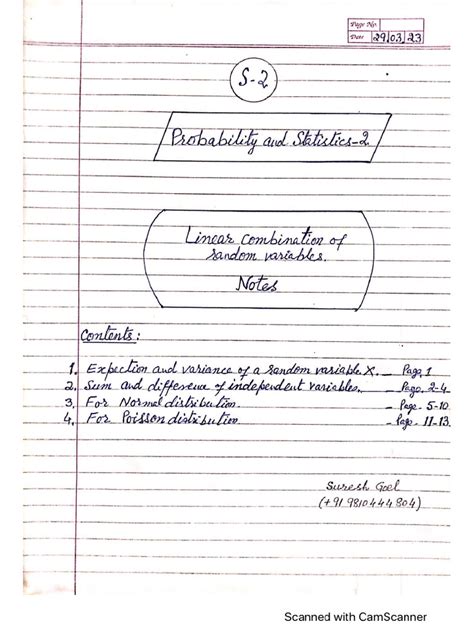 Page No.
Date 29/03/23
S-2
Probability and Statistics-2
Linear combination of
random variables.
Notes
Contents:
1. Expection and variance of a random variable X. - Page 1
2. Sum and difference of independent variables. - Page. 2-4
3. For Normal distribution. - Page. 5-10
4. For Poisson distribution - Page. 11-13
Suresh Goel
(+91 9810444804)
Scanned with CamScanner